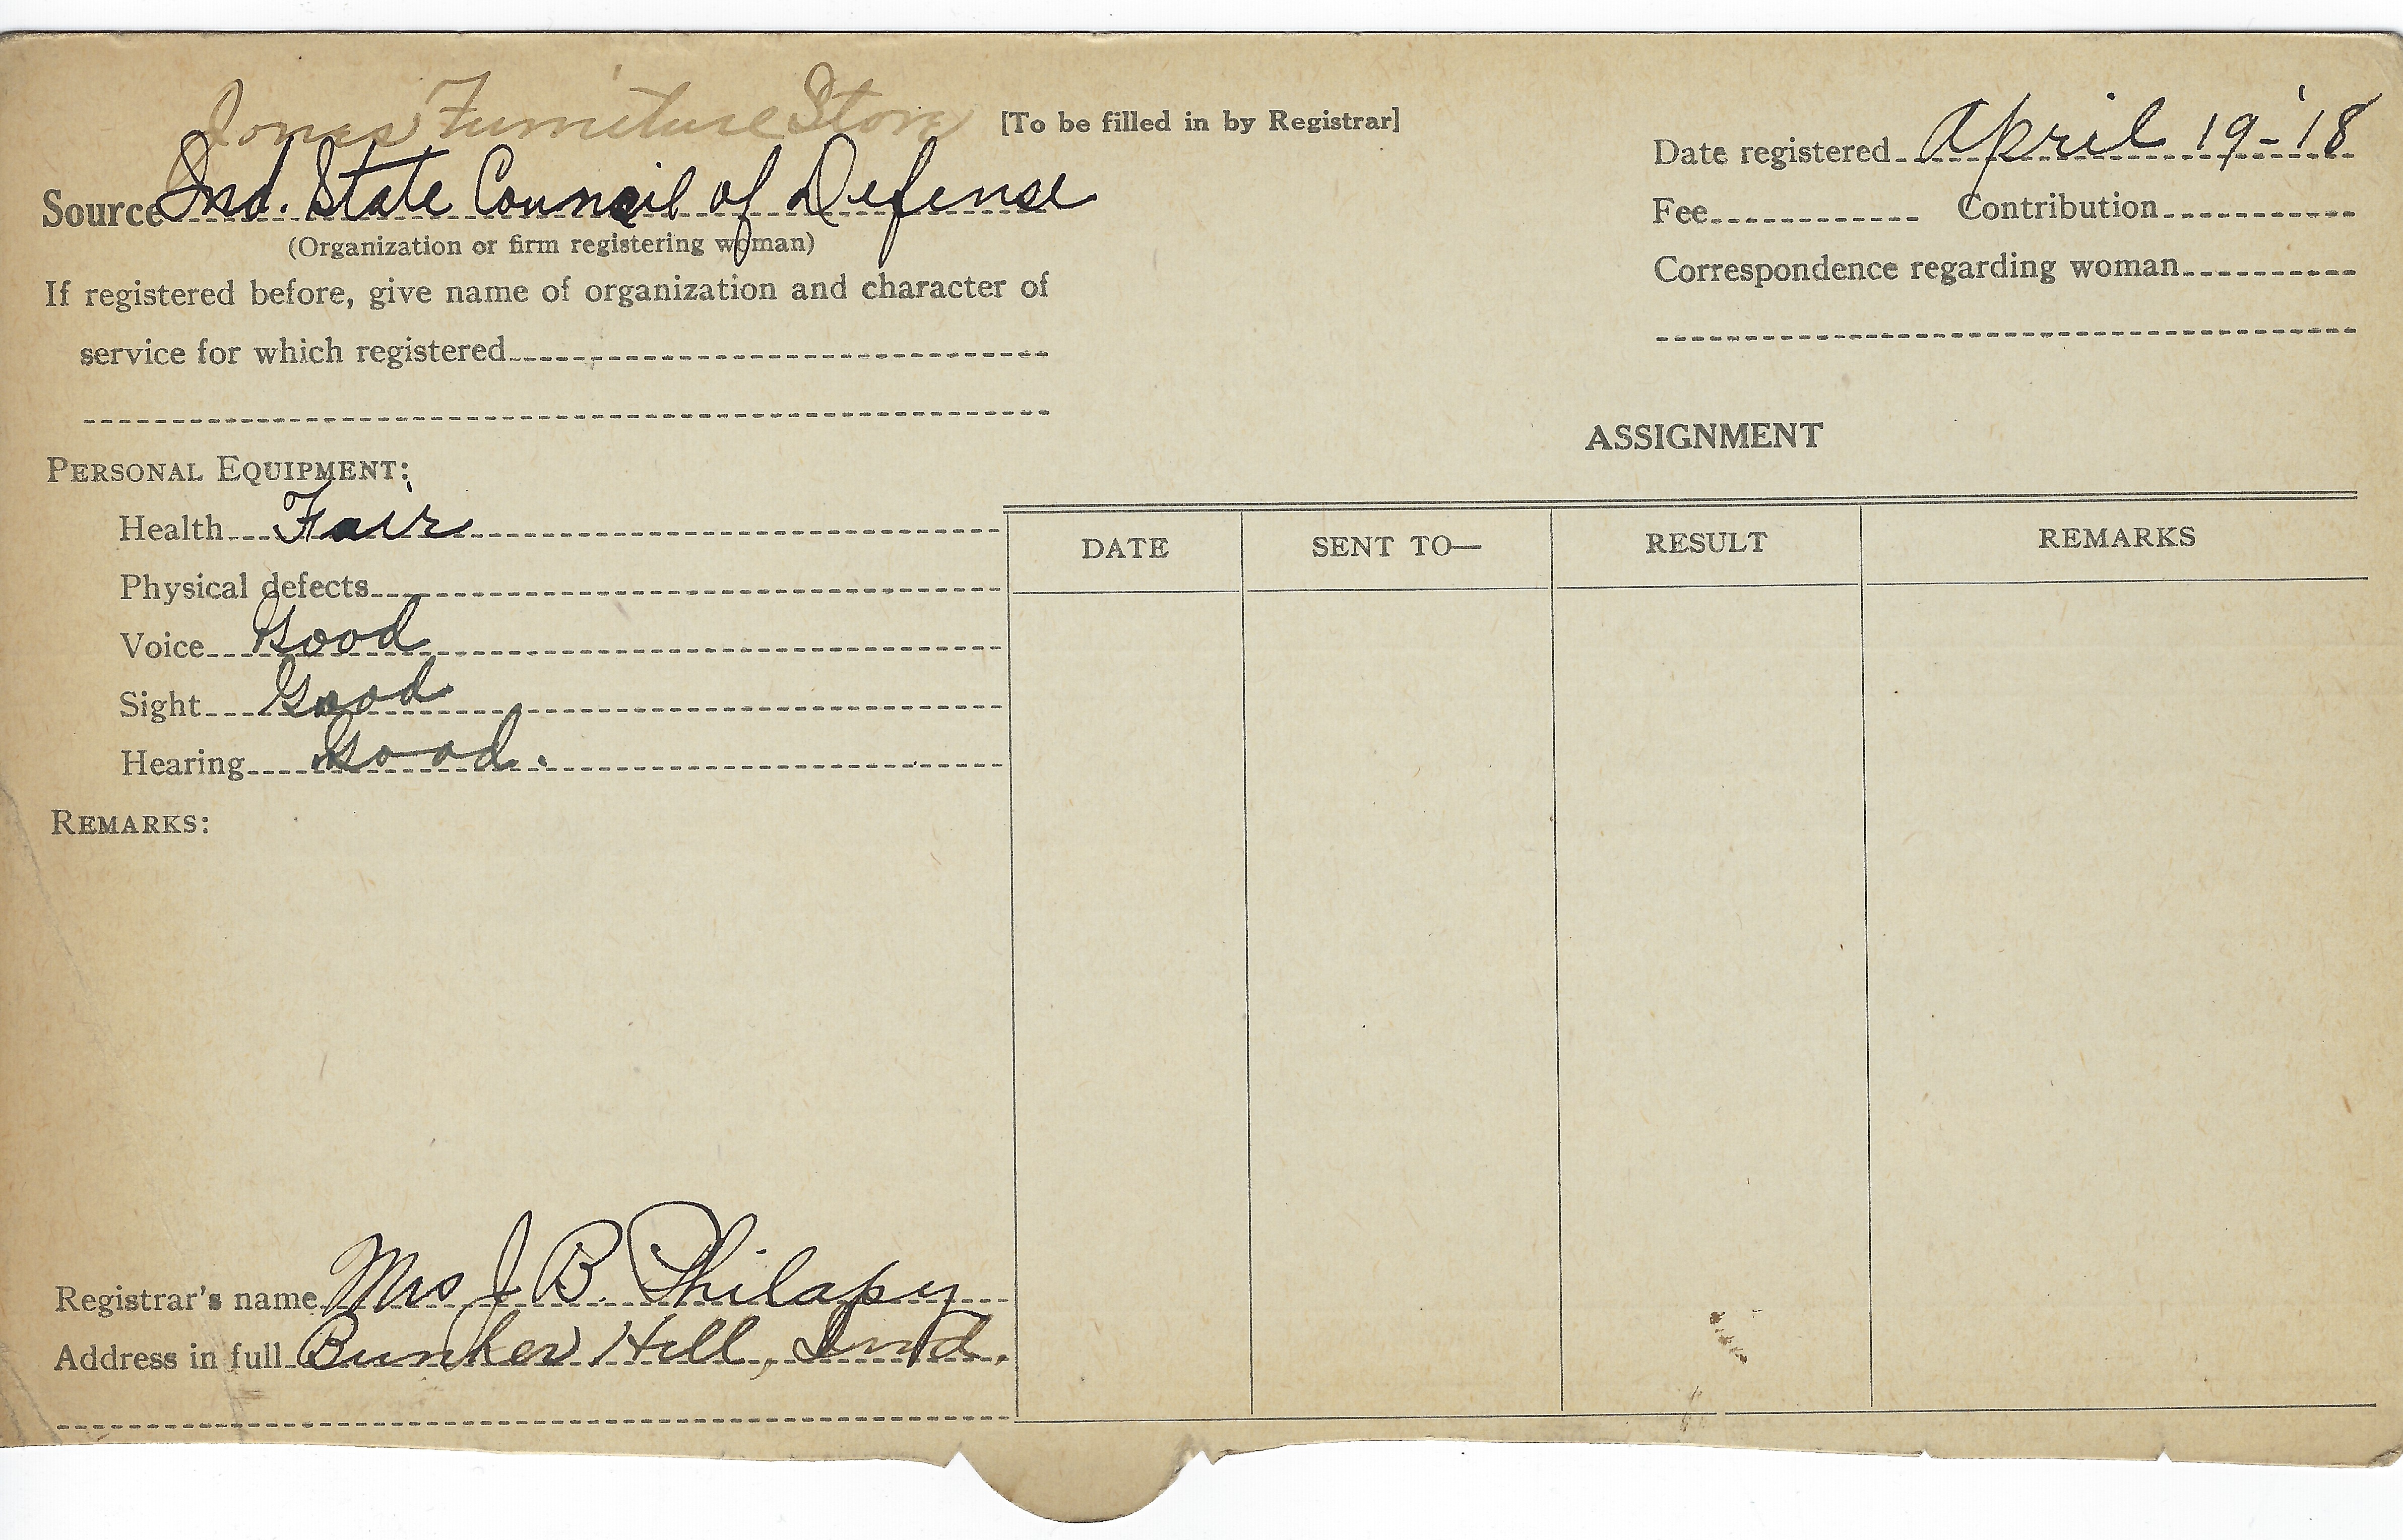 Jones Furniture Store
[To be filled in by Registrar]
Source Ind. State Council of Defense
(Organization or firm registering woman)
If registered before, give name of organization and character of
service for which registered
Date registered April 19-'18
Fee Contribution
Correspondence regarding woman
PERSONAL EQUIPMENT:
Health Fair
Physical defects
Voice Good
Sight Good
Hearing Good.
REMARKS:
ASSIGNMENT
DATE SENT TO— RESULT REMARKS
Registrar's name Mrs J B. Philapy
Address in full Bunker Hill, Ind.